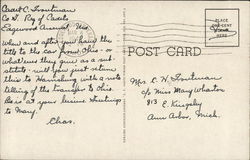 Cadet C. Troutman
Co D. Rg of Cadets
Edgewood Arsenal, Md.
When and after you have the
title to the car from Ohio - or
what ever they give as a sub-
stitute - will you just return
this to Harrisburg with a note
telling of the transfer to Ohio.
Best at your leisure. Greetings
to Mary!
Chas.
POST CARD
PLACE
STAMP
HERE
Mrs. C. H. Troutman
c/o Miss Mary Wharton
813 E. Kingsley
Ann Arbor, Mich.